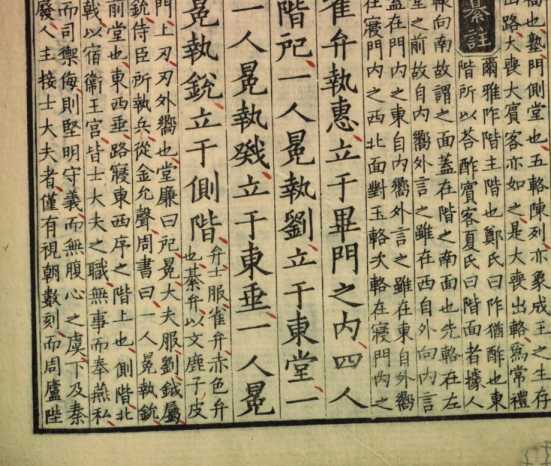 福也塾門側堂也五輅陳列亦象成王之生存
出路大喪大賓客亦如之是大喪出輅為常禮
纂註
爾雅阼階主階也鄭氏曰阼猶酢也東
階所以荅酢賓客夏氏曰階面者據人
輅向南故謂之面蓋在階之南面也先輅在左
堂之前故自內嚮外言之雖在西自外向內言
蓋在門內之東自內嚮外言之雖在東自外嚮
在寢門內之西北面對玉輅次輅在寢門內之
雀弁執惠立于畢門之內四人
階戺一人冕執劉立于東堂一
一人冕執戣立于東垂一人冕
冕執銳立于側階
弁士服雀弁赤色弁
也綦弁以文鹿子皮
門上刃刃外嚮也堂廉曰戺冕大夫服劉鉞屬
銳侍臣所執兵從金允聲周書曰一人冕執鈗
前堂也東西垂路寢東西序之階上也側階北
戟以宿衛王宫皆士大夫之職無事而奉燕私
而司禦侮則堅明守義而無腹心之虞下及秦
廢人主接士大夫者僅有視朝數刻而周廬陛